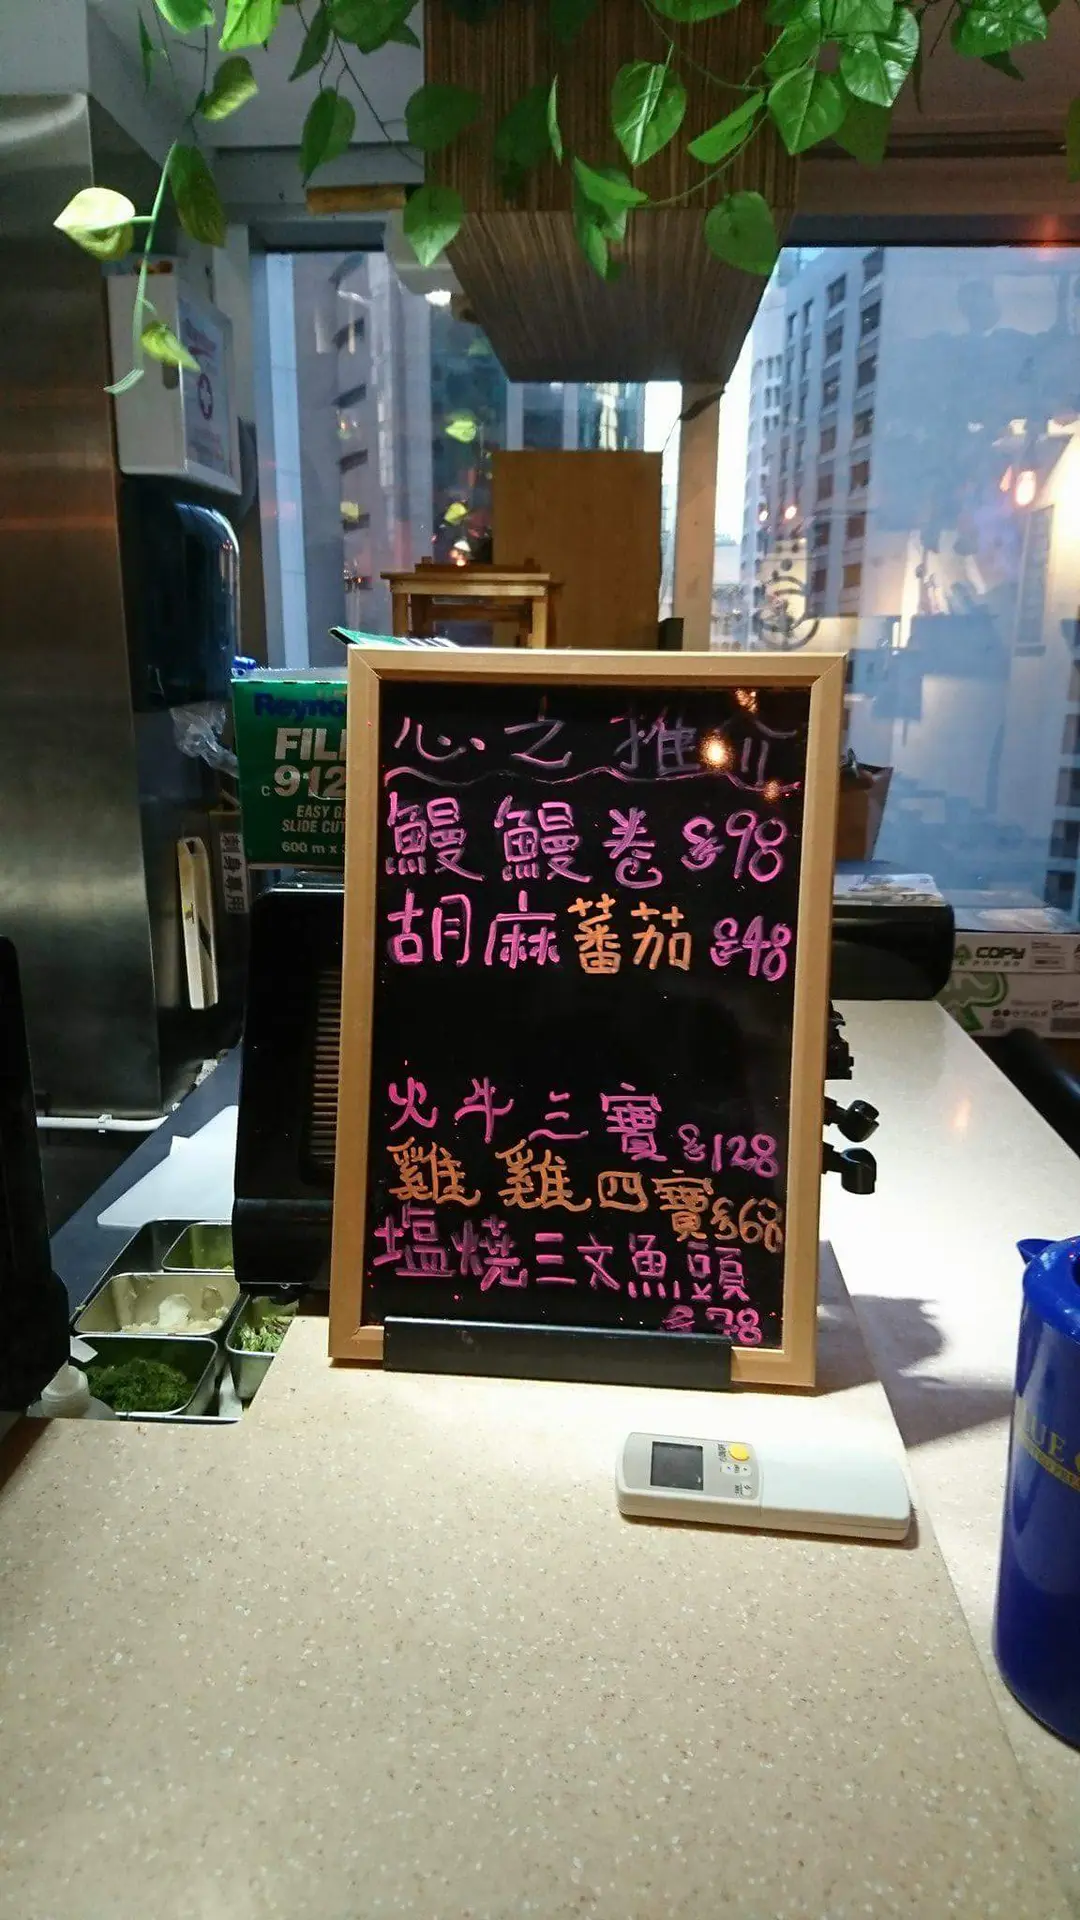 心之推介
鰻鰻卷 $98
胡麻蕃茄 $48
火牛三寶 $128
雞雞四寶 $68
塩燒三文魚頭
$78
Reyno
FIL
912
EASY
SLIDE CUT
600 m x
COPY